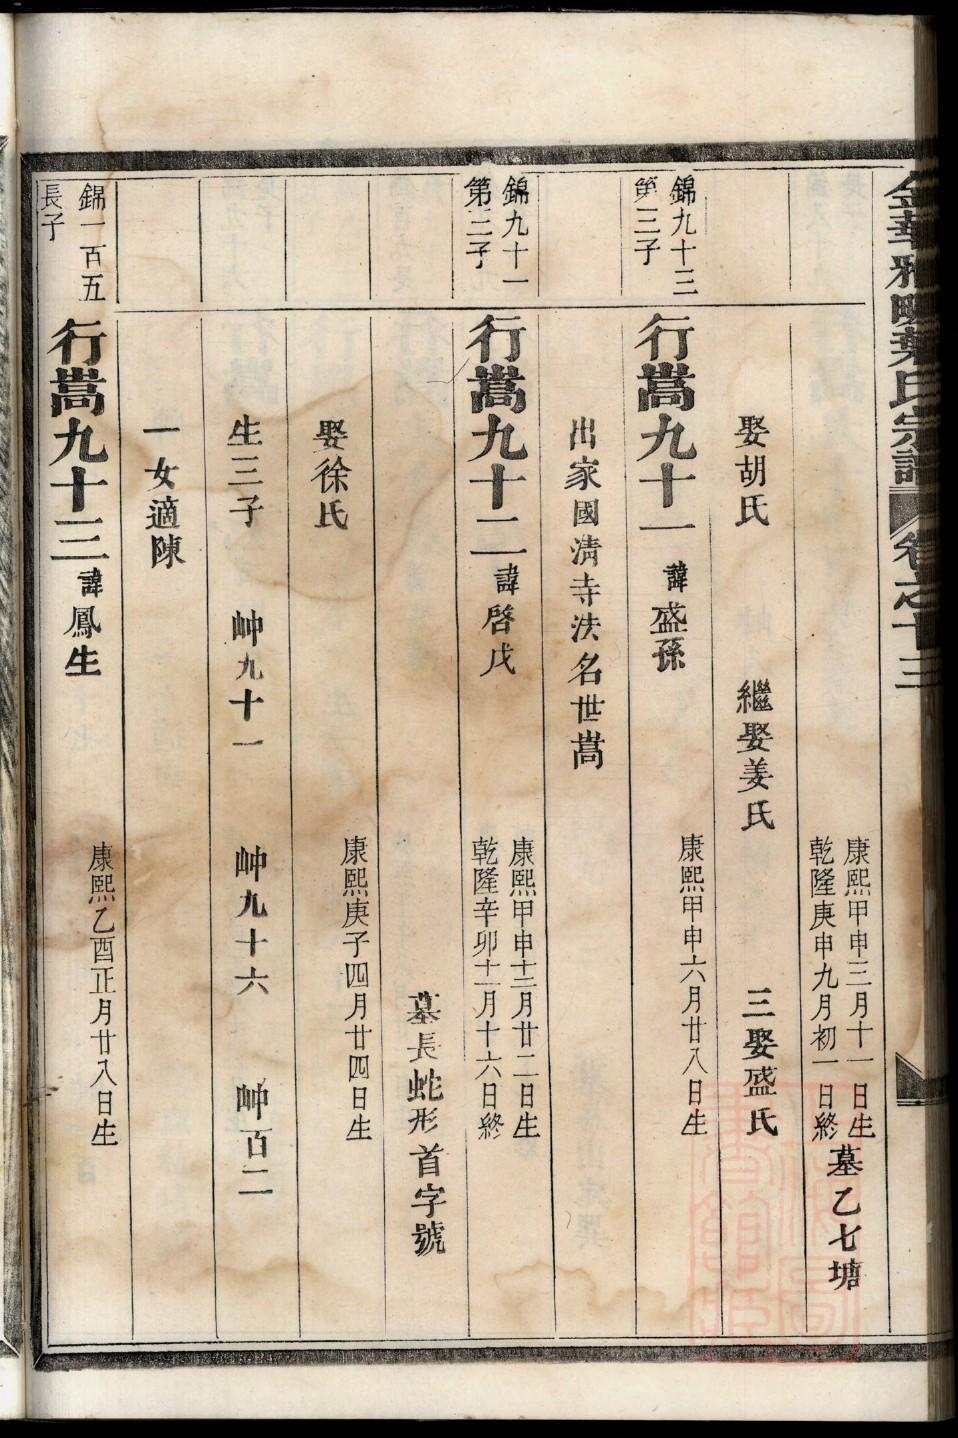 金華雅畈葉氏宗譜 卷之十三
康熙甲申三月十一日生
乾隆庚申九月初一日終
墓乙七塘
娶胡氏 繼娶姜氏 三娶盛氏
錦九十三
第三子
行嵩九十一 諱盛孫 康熙甲申六月廿八日生
出家國清寺法名世嵩
錦九十一
第三子
行嵩九十二 諱啓戊
康熙甲申十二月廿二日生
乾隆辛卯十一月十六日終
墓長蛇形首字號
娶徐氏 康熙庚子四月廿四日生
生三子 岫九十一 岫九十六 岫百二
一女適陳
錦一百五
長子
行嵩九十三 諱鳳生 康熙乙酉正月廿八日生